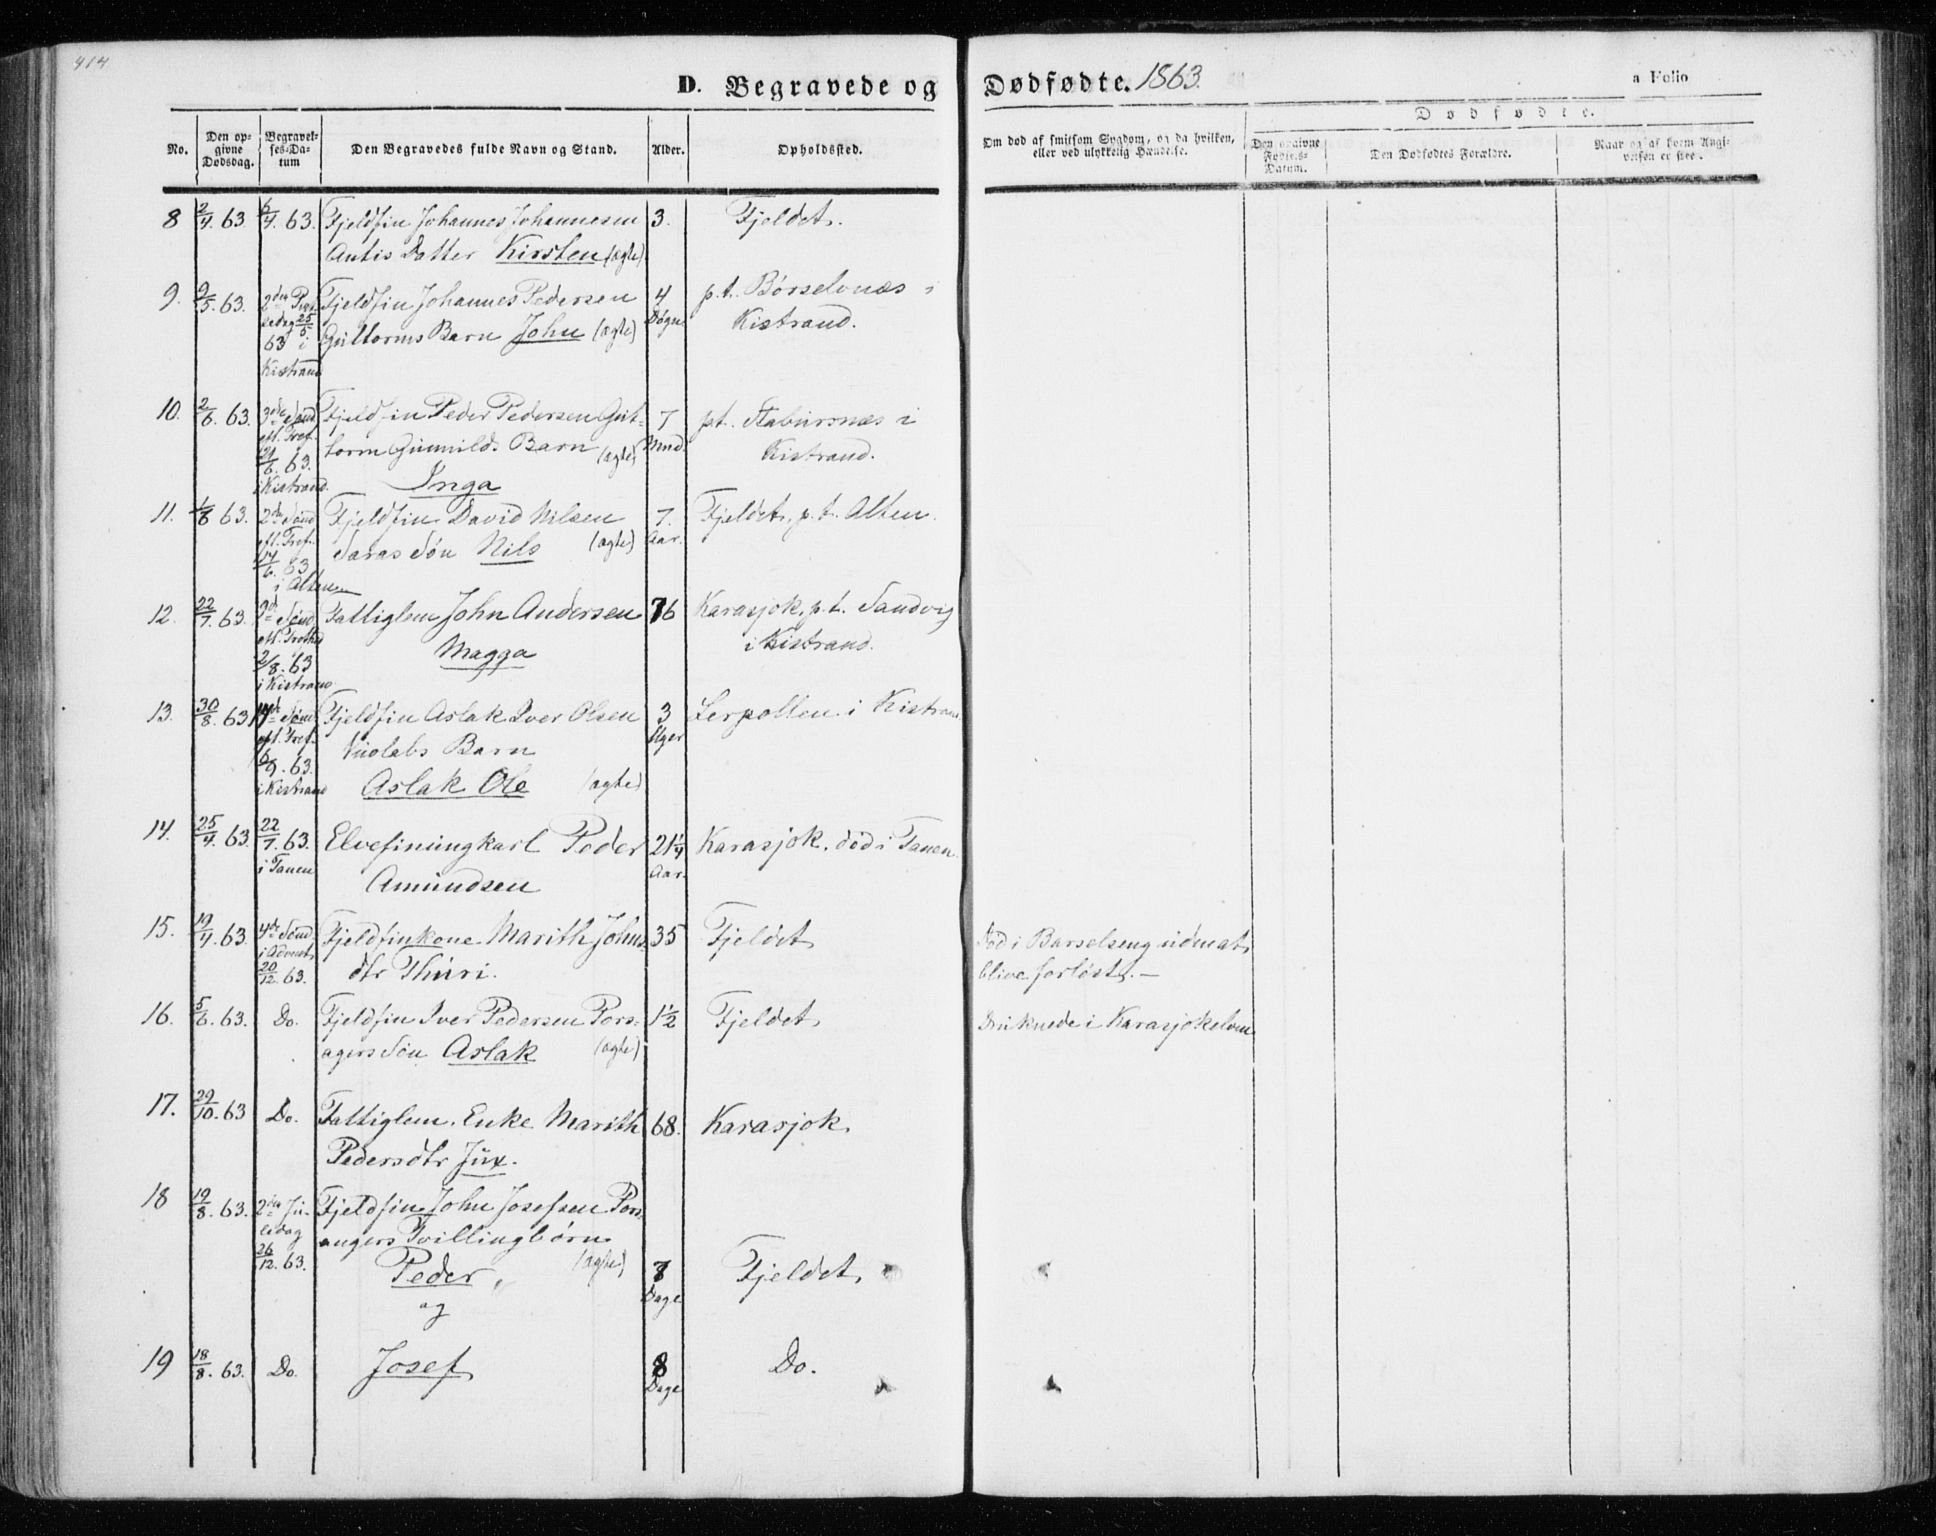 414
D. Begravede og Dødfødte. 1863.
a Folio
No.
Den opgivne Dødsdag.
Begravelses-Datum
Den Begravedes fulde Navn og Stand.
Alder.
Opholdssted.
Om død af smitsom Sygdom, og da hvilken, eller ved ulykkelig Hændelse.
Dødfødte.
Den opgivne Fødsels-Datum.
Den Dødfødtes Forældre.
Naar og af hvem Angivelsen er skeet.
8 2/4. 63 6/4. 63. Fjeldfin Johannes Johannesen 3. Fjeldet.
Antis Datter Kirsten (ægte)
9. 9/5. 63. 2den Pintsedag 25/5 63 i Kistrand Fjeldfin Johannes Pedersen 4 Døgn p.t. Børselvnæs i
Guttorms Barn John (ægte) Kistrand.
10. 2/6. 63. 3de Sønd. eft. Tref. 21/6. 63. i Kistrand. Fjeldfin Peder Pedersen Gut- 7 Mnd. p.t. Stabursnæs i
torm Gunnilds Barn (ægte) Kistrand.
Inga
11. 1/6 63. 2den Sønd eft. Tref. 14/6. 63 i Alten Fjeldfin David Nilsen 7. Aar. Fjeldet, p.t. Alten.
Saras Søn Nils (ægte)
12. 22/7. 63. 9de Sønd eft. Trefhed 2/8. 63 i Kistrand Fattiglem John Andersen 76 Karasjok, p.t. Sandvig
Magga i Kistrand.
13. 30/8. 63 14de Sønd eft. Tref. 6/9. 63. i Kistrand Fjeldfin Aslak Iver Olsen 3 Uger Lerpollen i Kistrand
Niolabs Barn
Aslak Ole (ægte)
14. 25/4. 63. 22/7. 63. i Tanen Elvefinungkarl Peder 21 1/4 Aar. Karasjok, død i Tanen.
Amundsen
15. 19/4. 63. 4de Sønd i Advent 20/12. 63. Fjeldfinkone Marith Johns- 35 Fjeldet, Død i Barselseng uden at
dtr Thuri. blive forløst. —
16. 5/6. 63. Do. Fjeldfin Iver Pedersen Pors- 1 1/2 Fjeldet, Druknede i Karasjokelven
agers Søn Aslak (ægte)
17. 29/10. 63 Do. Fattiglem. Enke Marith 68. Karasjok.
Pedersdtr Jux.
18 19/8. 63. 2den Juledag 26/12. 63. Fjeldfin John Josefsen Pors-
angers Tvillingbørn
Peder, (ægte) 7 Dage Fjeldet,
og
19 18/8. 63. Do. Josef, 8 Dage Do.